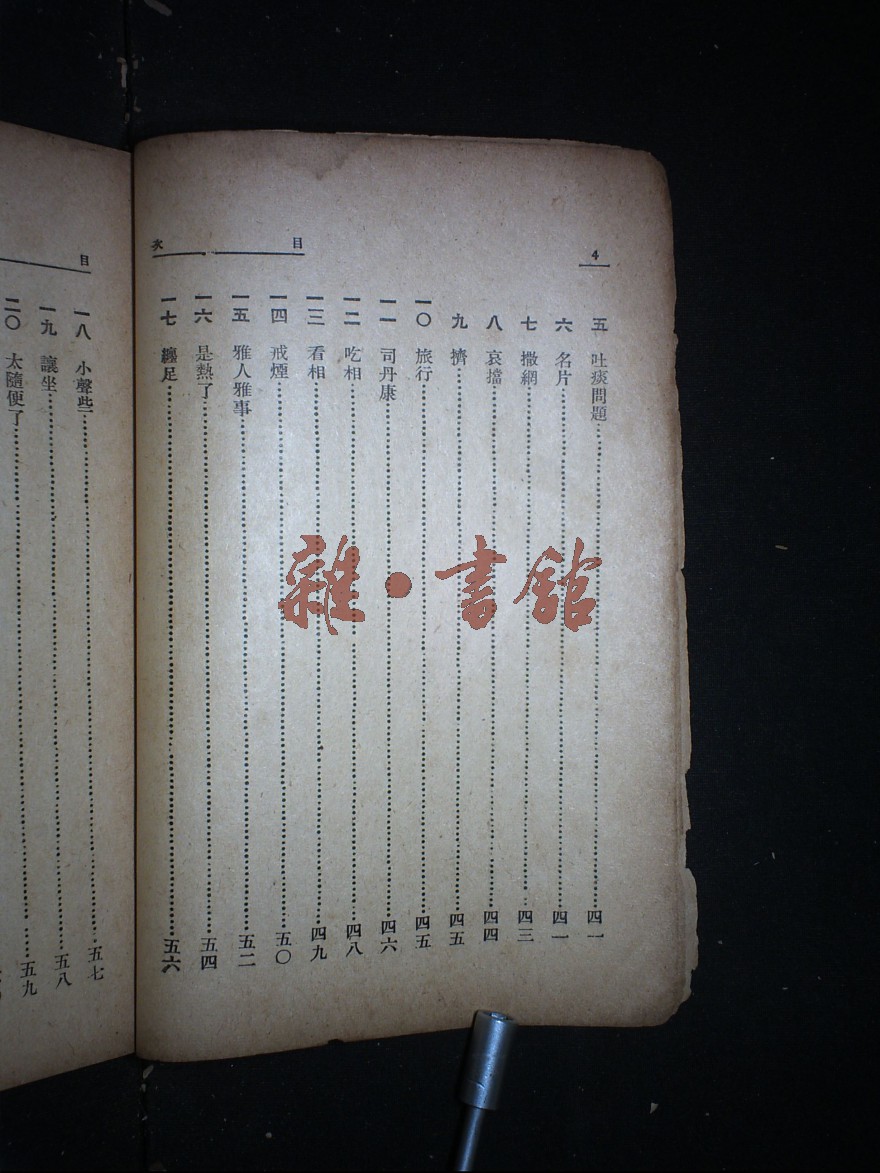 4
目次
五 吐痰問題 四一
六 名片 四一
七 撒網 四三
八 哀擋 四四
九 擠 四五
一〇 旅行 四五
一一 司丹康 四六
一二 吃相 四八
一三 看相 四九
一四 戒煙 五〇
一五 雅人雅事 五二
一六 是熱了 五四
一七 纏足 五六
目
一八 小聲些 五七
一九 讓坐 五八
二〇 太隨便了 五九
雜·書館